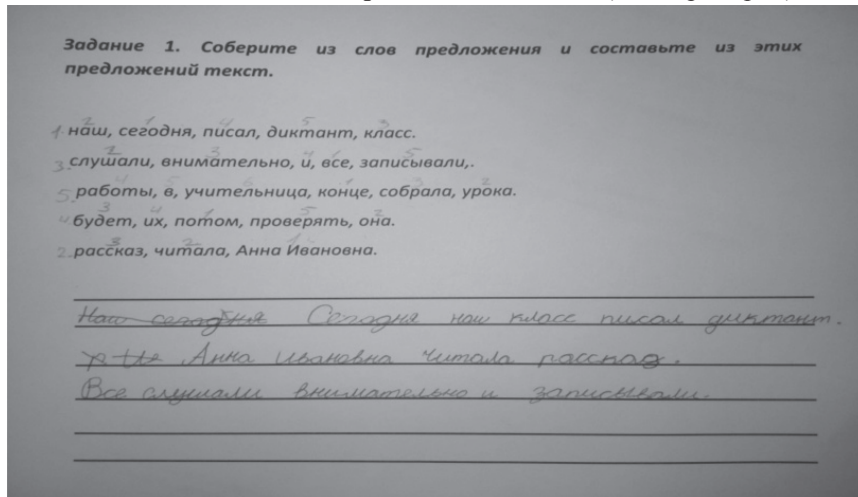 Задание 1. Соберите из слов предложения и составьте из этих
предложений текст.
1. наш, сегодня, писал, диктант, класс.
3. слушали, внимательно, и, все, записывали,.
5. работы, в, учительница, конце, собрала, урока.
4 будет, их, потом, проверять, она.
2. рассказ, читала, Анна Ивановна.
Наш сегодня Сегодня наш класс писал диктант.
Анна Ивановна читала рассказ.
Все слушали внимательно и записывали.